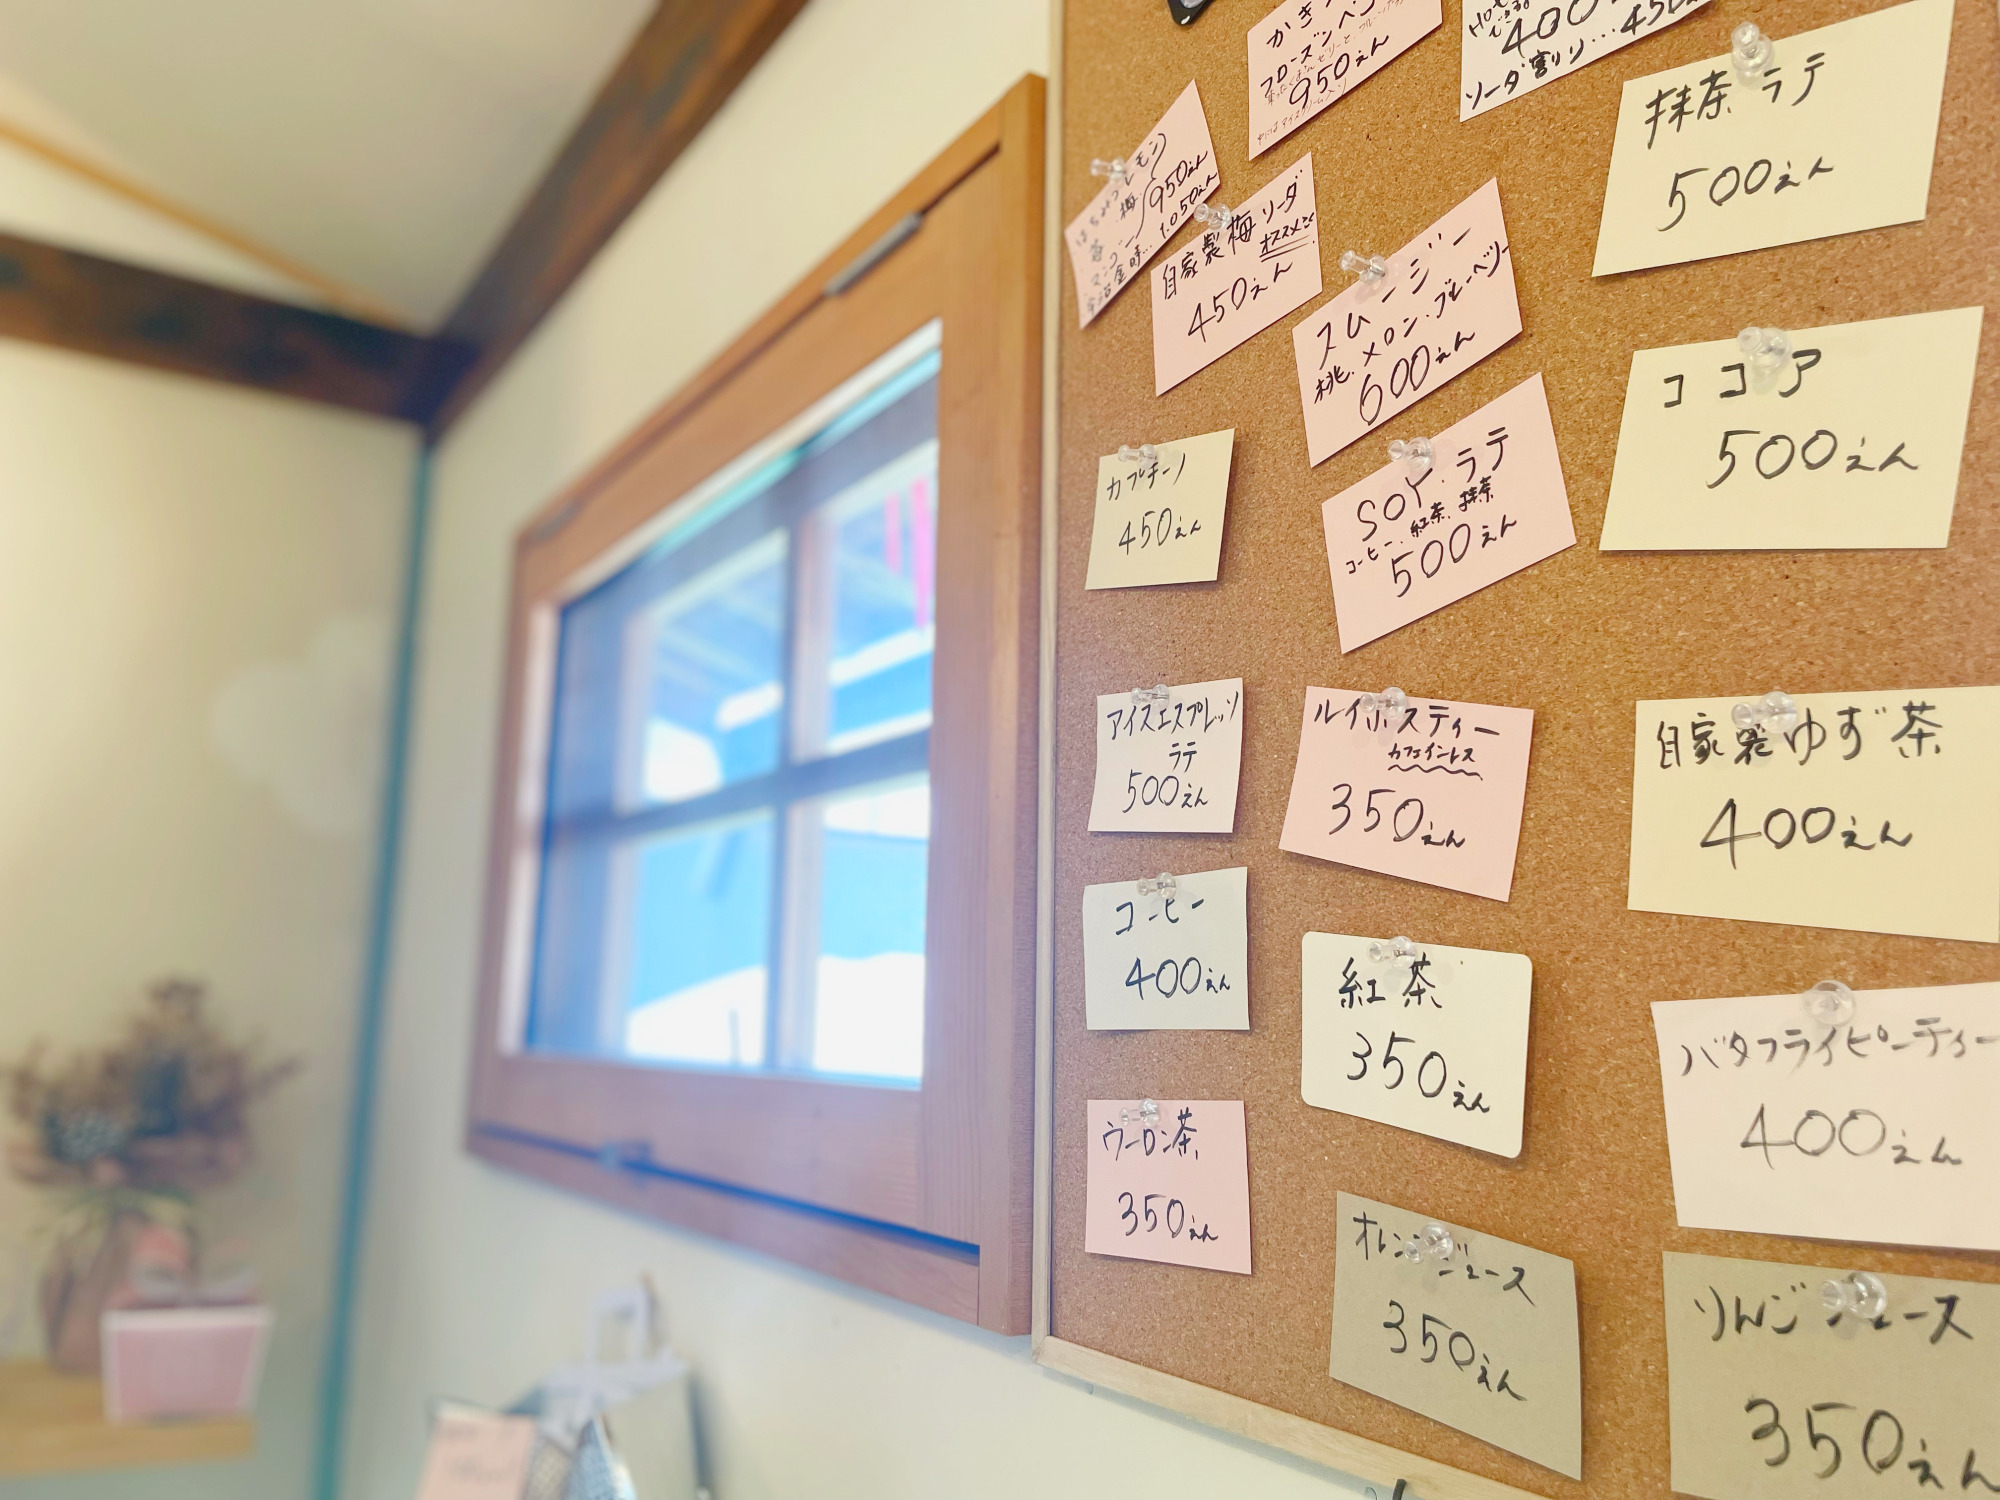 かき
フローズンペン
950えん
Hot
400
ソーダ割り…450
抹茶ラテ
500えん
はちみつレモン
梅
950えん
マンゴー
宇治金時…1.050えん
自家製梅ソーダ
オススメ
450えん
スムージー
桃.メロン.ブルーベリー
600えん
ココア
500えん
カプチーノ
450えん
SOY.ラテ
コーヒー.紅茶.抹茶
500えん
アイスエスプレッソ
ラテ
500えん
ルイボスティー
カフェインレス
350えん
自家製ゆず茶
400えん
コーヒー
400えん
紅茶
350えん
バタフライピーティー
400えん
ウーロン茶
350えん
オレンジジュース
350えん
りんごジュース
350えん